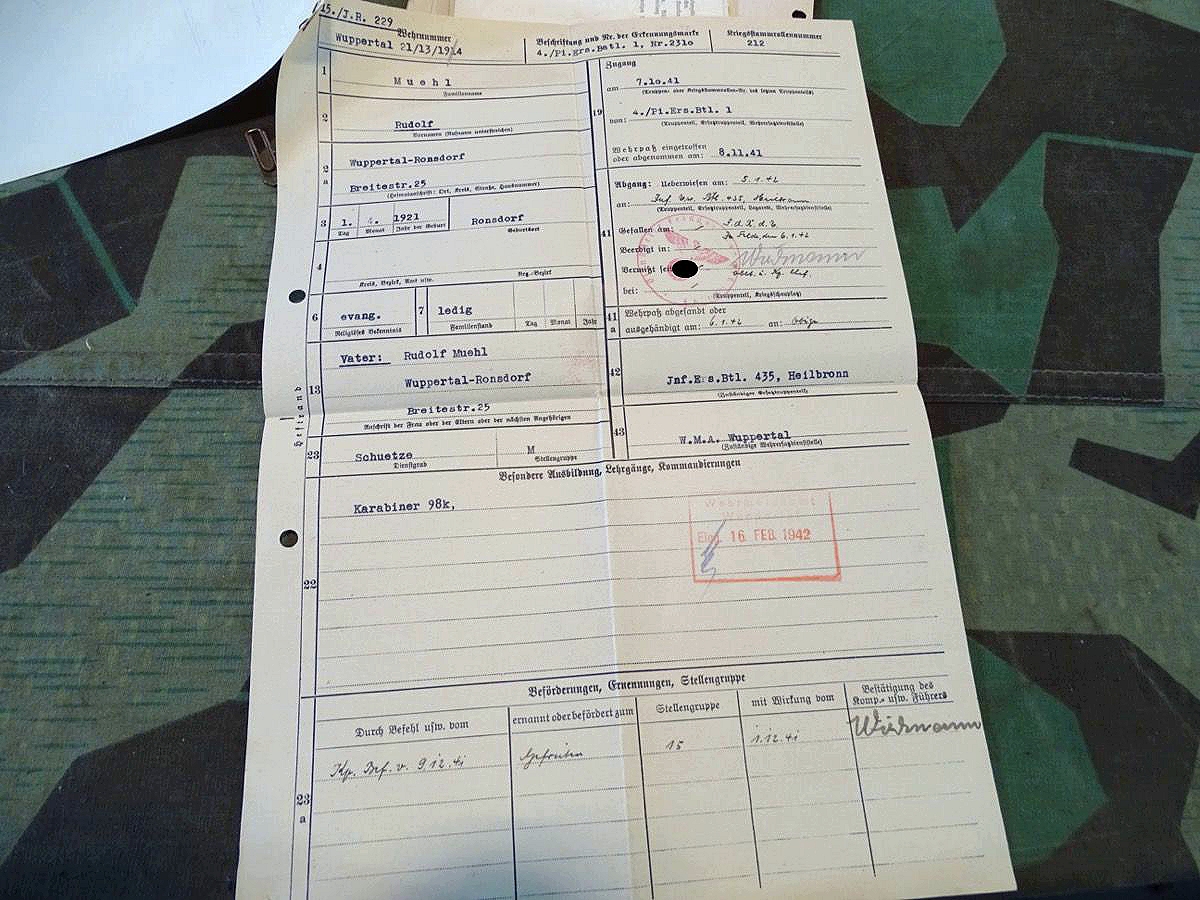 15./J.R. 229
Wehrnummer
Wuppertal 21/13/1914
Beschriftung und Nr. der Erkennungsmarke
4./Pi.Ers.Batl. 1, Nr.2310
Kriegsstammrollennummer
212
1
Muehl
Familienname
2
Rudolf
Vornamen (Rufname unterstreichen)
2 a
Wuppertal-Ronsdorf
Breitestr.25
(Heimatanschrift: Ort, Kreis, Straße, Hausnummer)
3
1. 1921
Ronsdorf
Tag Monat Jahr der Geburt
Geburtsort
4
Kreis, Bezirk, Amt usw.
Reg.-Bezirk
6
evang.
Religiöses Bekenntnis
7
ledig
Familienstand
Tag Monat Jahr
Heftrand
13
Vater: Rudolf Muehl
Wuppertal-Ronsdorf
Breitestr.25
Anschrift der Frau oder der Eltern oder der nächsten Angehörigen
23
Schuetze
Dienstgrad
M
Stellengruppe
19
Zugang
am 7.10.41
von: 4./Pi.Ers.Btl. 1
(Truppenteil, Ersatztruppenteil, Wehrersatzdienststelle)
Wehrpaß eingetroffen
oder abgenommen am: 8.11.41
41
Abgang: Ueberwiesen am: 5.1.42
an: Inf. Ers. Btl. 435, Heilbronn
(Truppenteil, Ersatztruppenteil, Lazarett, Wehrersatzdienststelle)
Gefallen am:
Im Felde, den 6.1.42
Beerdigt in:
Widmann
Vermißt seit
bei:
(Truppenteil, Kriegsschauplatz)
41 a
Wehrpaß abgesandt oder
ausgehändigt am: 6.1.42 an:
42
Jnf.Ers.Btl. 435, Heilbronn
(Zuständiger Ersatztruppenteil)
43
W.M.A. Wuppertal
(Zuständige Wehrersatzdienststelle)
Besondere Ausbildung, Lehrgänge, Kommandierungen
22
Karabiner 98k,
Eing. 16 FEB. 1942
Beförderungen, Ernennungen, Stellengruppe
23 a
Durch Befehl usw. vom
ernannt oder befördert zum
Stellengruppe
mit Wirkung vom
Bestätigung des
Komp.- usw. Führers
Kp. Bef. v. 9.12.41
Gefreiten
15
1.12.41
Widmann